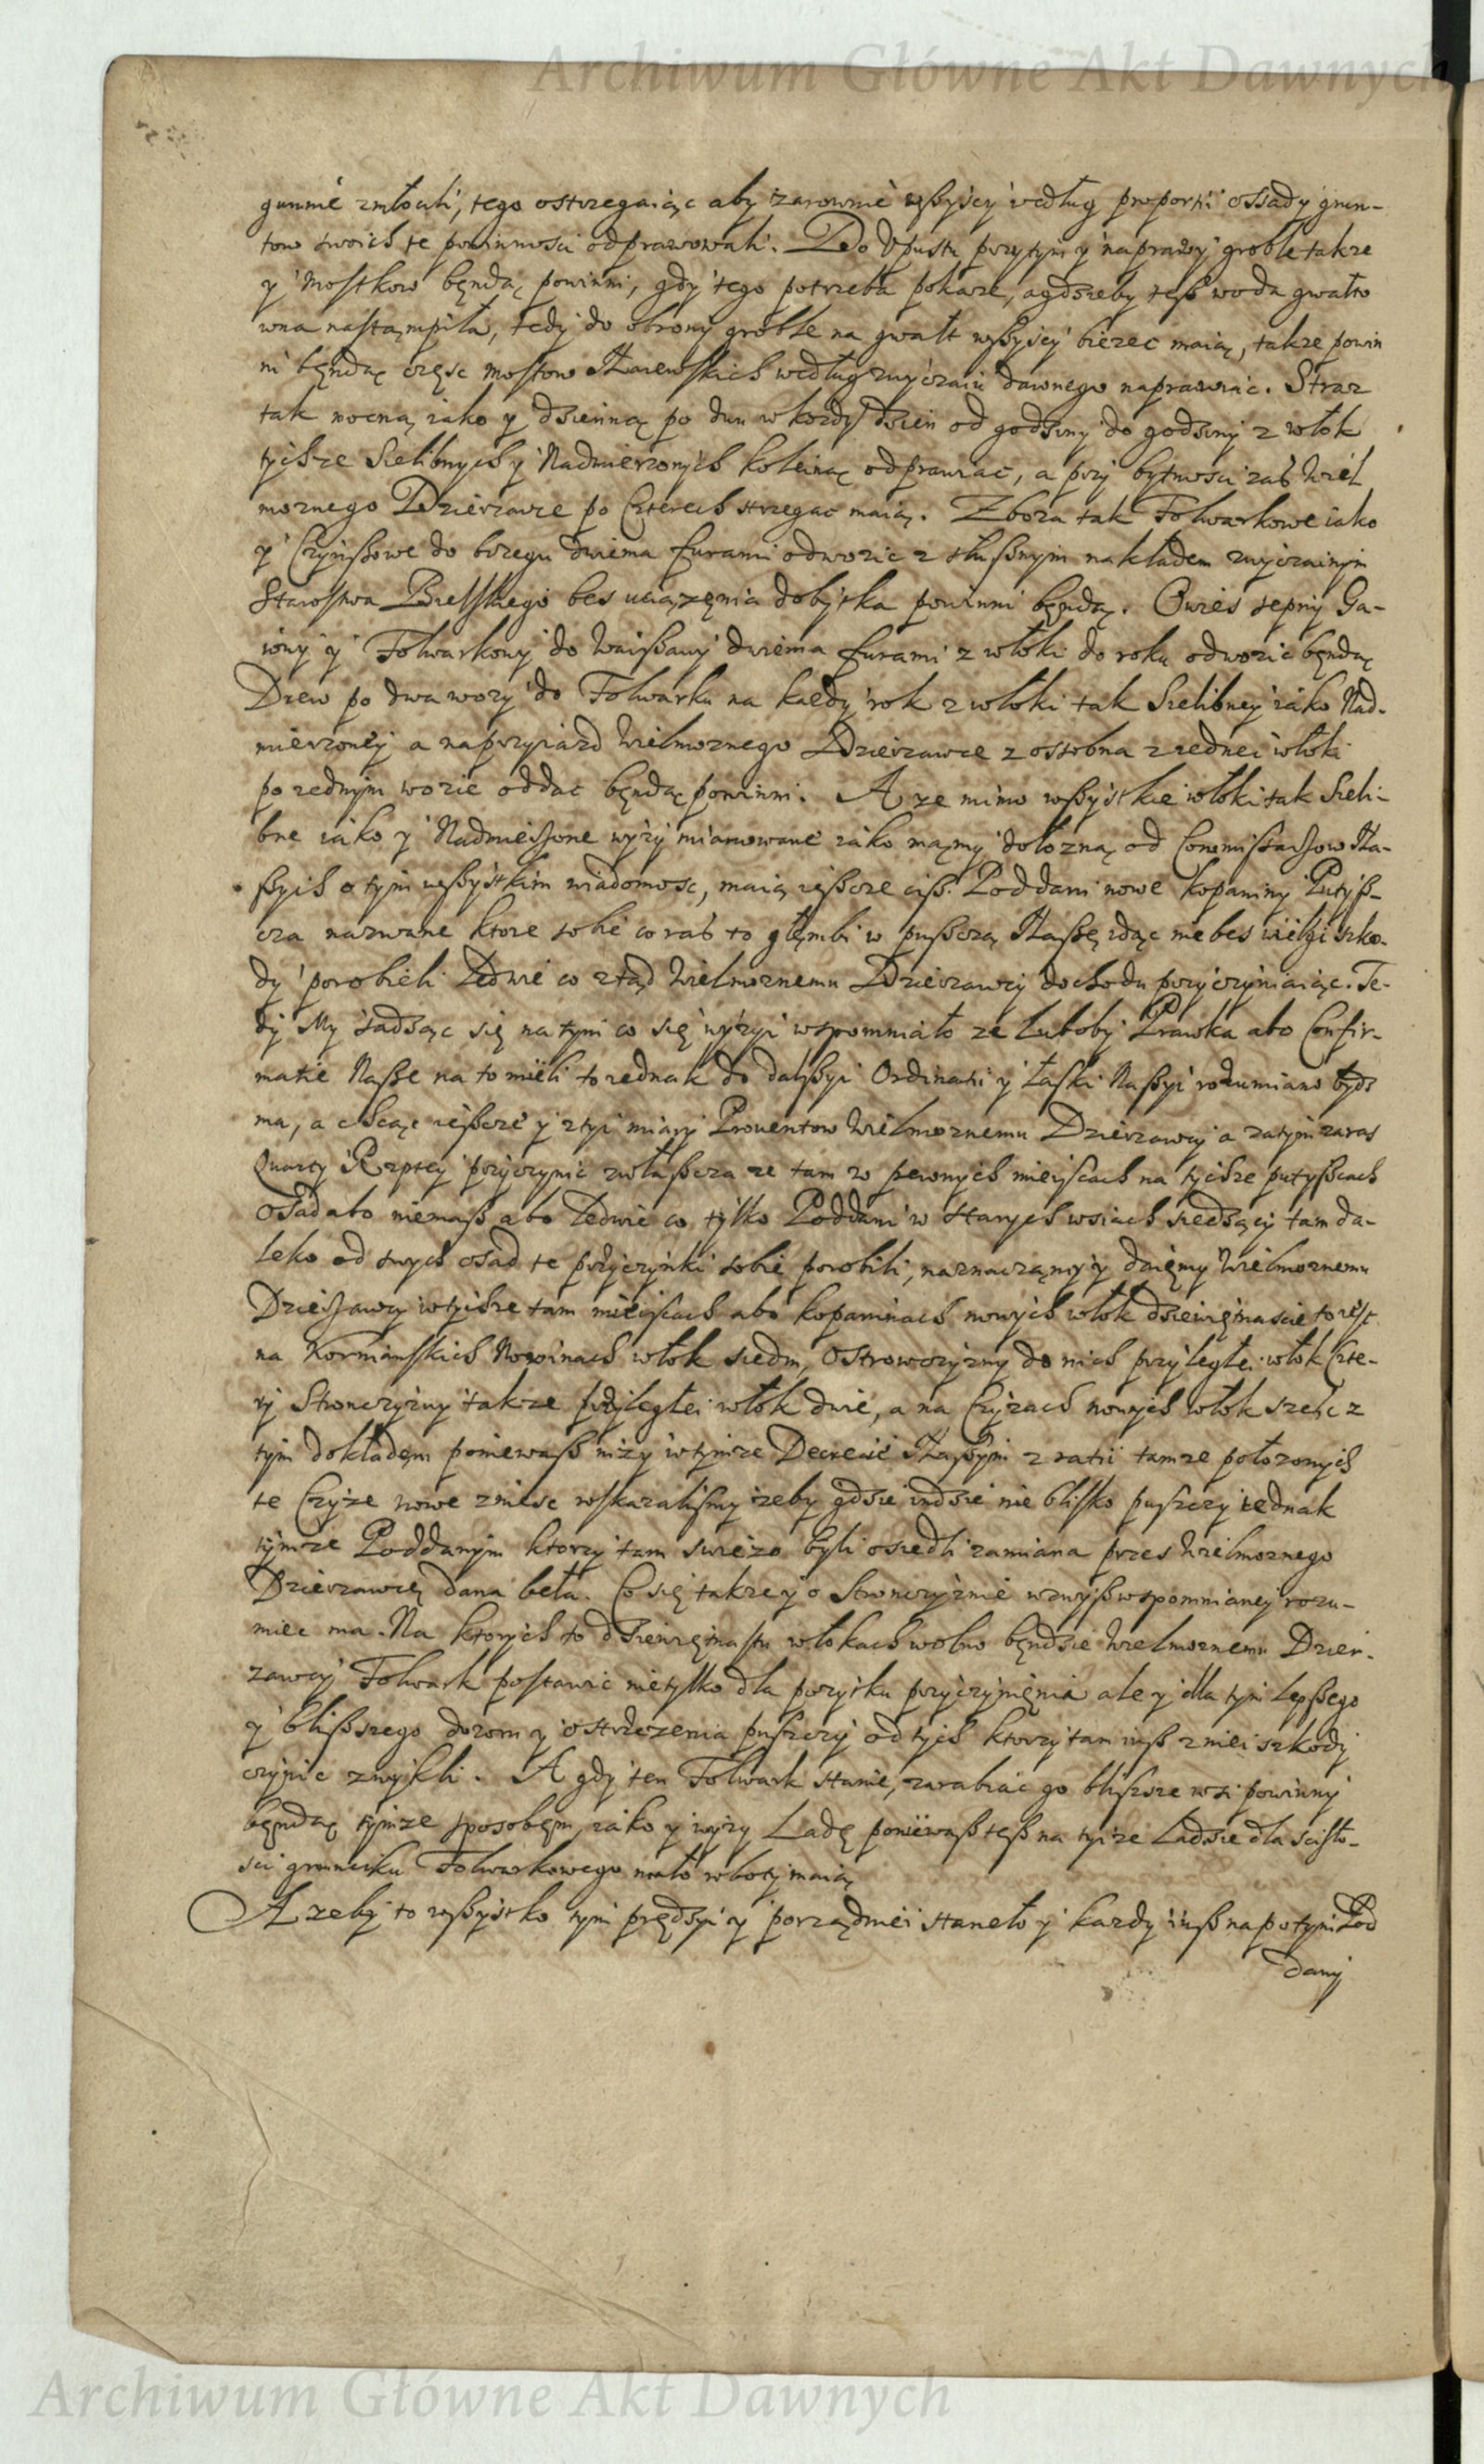 Archiwum Główne Akt Dawnych
gumnie zmłocili, tego ostrzegaiąc aby zarownie wßyscy według proportii ossady grun-
tow swoich te powinnosci odprawowali. Do Vpustu przytym y naprawy groble takze
y Mostkow bęndą powinni, gdy tego potrzeba pokaze, a gdzieby teß woda gwałto
wna nastąmpiła, tedy do obrony groble na gwałt wßyscy biezec maią, takze powin
ni bęndą częsc mostow Narewskich według zwyczaiu dawnego naprawiac. Straz
tak nocną iako y dzienną po dwu w kozdy dzien od godziny do godziny z włok
tychze Sielibnych y Nadmierzonych koleiną odprawiac, a przy bytnosci zas Wiel
moznego Dzierzawce po Czterech strzegac maią. Zboza tak Folwarkowe iako
y Czynßowe do brzegu dwiema furami odwozic z słußnym nakładem zwyczainym
Starostwa Bielskiego bes uciązęnia dobytka powinni bęndą. Owies sepny Ga-
iowy y Folwarkowy do Warßawy dwiema furami z włoki do roku odwozic bęndą
Drew po dwa wozy do Folwarku na kaedy rok z włoki tak Sielibney iako Nad-
mierzoney a na przyiazd Wielmoznego Dzierzawce z ossobna z iednei włoki
po iednym wozie oddac bęndą powinni. A ze mimo wßystkie włoki tak Sieli-
bne iako y Nadmierzone wyzy mianowane iako mąmy dołozną od Commißarzow Na-
ßych o tym wßystkim wiadomosc, maią ießcze ciß Poddani nowe kopaniny Putyß-
cza nazwane ktore sobie co ras to głęmbi w pußczą Naßę idąc nie bes wielgi szko-
dy porobieli Ledwie co ztąd Wielmoznemu Dzierzawcy dochodu przyczyniaiąc. Te-
dy My sadząc się na tym co się wyzyi wspomniało ze Luboby Prawka abo Confir-
matie Naße na to mieli to iednak do dalßyi Ordinatii y łaski Naßyi rozumiano bydz
ma, a chcąc ießcze y z tyi miary Prouentow Wielmoznemu Dzierzawcy a zatym zaras
Quarty Rzptey przyczynic zwłaßcza ze tam w pewnych mieyscach na tychze putyßcach
Osad abo niemaß abo Ledwie co tylko Poddani w starych wsiach siedzący tam da-
leko od swych osad te przyczynki sobie porobili, naznaczamy y dąięmy Wielmoznemu
Dzierzawcy w tychze tam mieyscach abo kopaninach nowych włok dziewiętnascie to iest
na Korniańskich Nowinach włok siedm, Ostrowczyzny do nich przyległei włok Czte-
ry Stronczyzny takze przyległei włok dwie, a na Czyzach nowych włok szesc z
tym dokładęm poniewaß nizy w tymze Decrecie Naßym z ratii tamze połozonych
te Czyze nowe zniesc wskazalismy zeby gdzie indzie nie blisko pußczy iednak
tymze Poddanym ktorzy tam swiezo byli osiedli zamiana przes Wielmoznego
Dzierzawcę dana beła. Co się takze y o Stronczyznie wzwyß wspomnianey rozu-
miec ma. Na ktorych to dziewiętnastu włokach wolno bęndzie Wielmoznemu Dzier-
zawcy Folwark postawic nie tylko dla pozytku przyczynięnia ale y dla tym Lepßego
y blißszego dozoru y ostrzezenia pußczy od tych ktorzy tam iuß z niei szkody
czynic zwykli. A gdy ten Folwark stanie, zarabiac go blißsze wsi powinny
bęndą tymze sposobęm, iako y wyzy Ladę poniewaß teß na tyi ze Ladzie dla scisło-
sci grunciku Folwarkowego mało roboty maią
A zeby to wßystko tym prędzyi y porządniei staneło y kazdy iuß na potym Pod
dany
Archiwum Główne Akt Dawnych